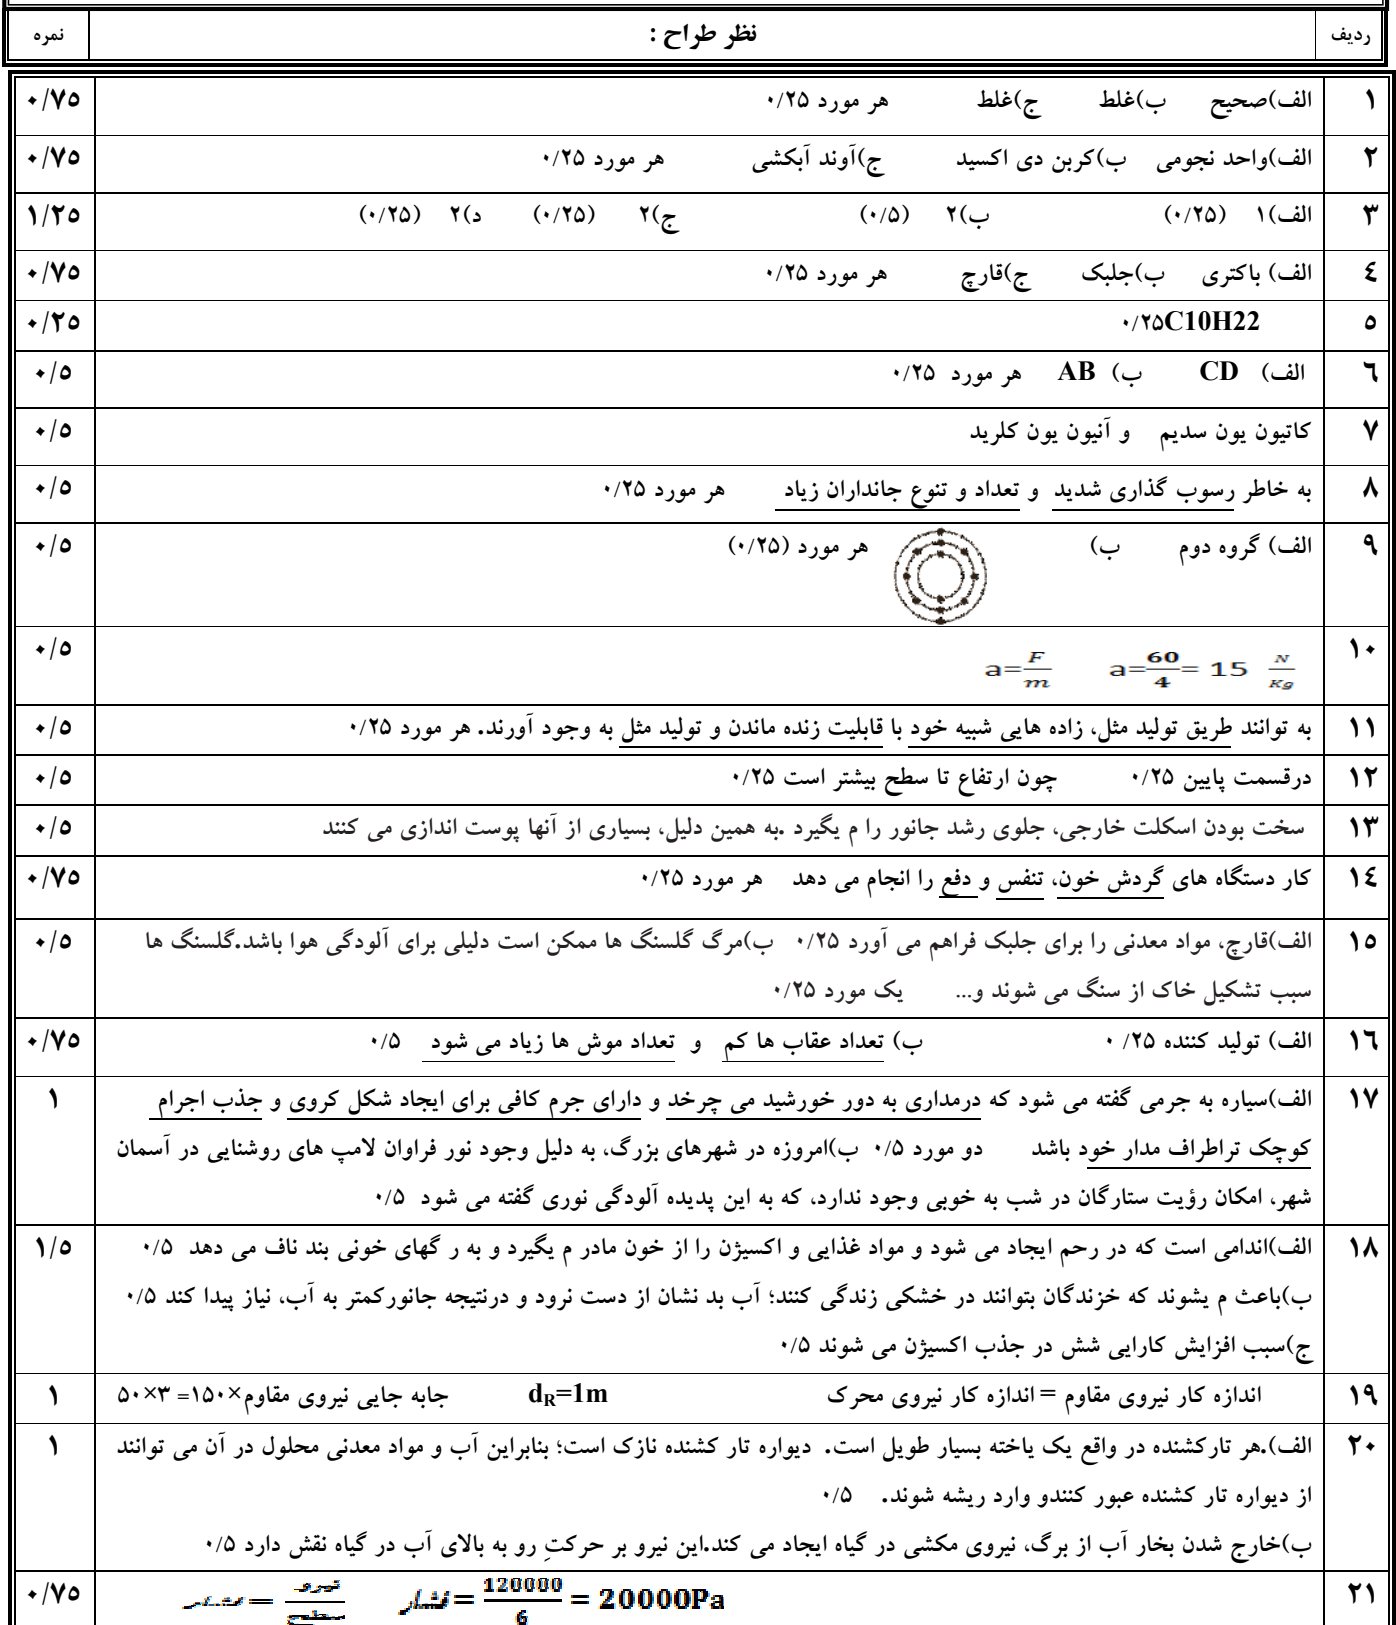 ردیف نظر طراح : نمره
۱ الف)صحیح ب)غلط ج)غلط هر مورد ۰/۲۵ ۰/۷۵
۲ الف)واحد نجومی ب)کربن دی اکسید ج)آوند آبکشی هر مورد ۰/۲۵ ۰/۷۵
۳ الف)۱ (۰/۲۵) ب)۲ (۰/۵) ج)۲ (۰/۲۵) د)۲ (۰/۲۵) ۱/۲۵
٤ الف) باکتری ب)جلبک ج)قارچ هر مورد ۰/۲۵ ۰/۷۵
۵ C10H22 ۰/۲۵ ۰/۲۵
٦ الف) CD ب) AB هر مورد ۰/۲۵ ۰/۵
۷ کاتیون یون سدیم و آنیون یون کلرید ۰/۵
۸ به خاطر رسوب گذاری شدید و تعداد و تنوع جانداران زیاد هر مورد ۰/۲۵ ۰/۵
۹ الف) گروه دوم ب) هر مورد (۰/۲۵) ۰/۵
۱۰ a=F/m a=60/4= 15 N/Kg ۰/۵
۱۱ به توانند طریق تولید مثل، زاده هایی شبیه خود با قابلیت زنده ماندن و تولید مثل به وجود آورند. هر مورد ۰/۲۵ ۰/۵
۱۲ درقسمت پایین ۰/۲۵ چون ارتفاع تا سطح بیشتر است ۰/۲۵ ۰/۵
۱۳ سخت بودن اسکلت خارجی، جلوی رشد جانور را م یگیرد .به همین دلیل، بسیاری از آنها پوست اندازی می کنند ۰/۵
۱٤ کار دستگاه های گردش خون، تنفس و دفع را انجام می دهد هر مورد ۰/۲۵ ۰/۷۵
۱۵ الف)قارچ، مواد معدنی را برای جلبک فراهم می آورد ۰/۲۵ ب)مرگ گلسنگ ها ممکن است دلیلی برای آلودگی هوا باشد.گلسنگ ها ۰/۵
سبب تشکیل خاک از سنگ می شوند و... یک مورد ۰/۲۵
۱٦ الف) تولید کننده ۰/۲۵ ب) تعداد عقاب ها کم و تعداد موش ها زیاد می شود ۰/۵ ۰/۷۵
۱۷ الف)سیاره به جرمی گفته می شود که درمداری به دور خورشید می چرخد و دارای جرم کافی برای ایجاد شکل کروی و جذب اجرام ۱
کوچک تراطراف مدار خود باشد دو مورد ۰/۵ ب)امروزه در شهرهای بزرگ، به دلیل وجود نور فراوان لامپ های روشنایی در آسمان
شهر، امکان رؤیت ستارگان در شب به خوبی وجود ندارد، که به این پدیده آلودگی نوری گفته می شود ۰/۵
۱۸ الف)اندامی است که در رحم ایجاد می شود و مواد غذایی و اکسیژن را از خون مادر م یگیرد و به ر گهای خونی بند ناف می دهد ۰/۵ ۱/۵
ب)باعث م یشوند که خزندگان بتوانند در خشکی زندگی کنند؛ آب بد نشان از دست نرود و درنتیجه جانورکمتر به آب، نیاز پیدا کند ۰/۵
ج)سبب افزایش کارایی شش در جذب اکسیژن می شوند ۰/۵
۱۹ اندازه کار نیروی مقاوم = اندازه کار نیروی محرک dR=1m جابه جایی نیروی مقاوم×۱۵۰= ۳×۵۰ ۱
۲۰ الف).هر تارکشنده در واقع یک یاخته بسیار طویل است. دیواره تار کشنده نازک است؛ بنابراین آب و مواد معدنی محلول در آن می توانند ۱
از دیواره تار کشنده عبور کنندو وارد ریشه شوند. ۰/۵
ب)خارج شدن بخار آب از برگ، نیروی مکشی در گیاه ایجاد می کند.این نیرو بر حرکتِ رو به بالای آب در گیاه نقش دارد ۰/۵
۲۱ فشار = نیرو/سطح فشار = 120000/6 = 20000Pa ۰/۷۵